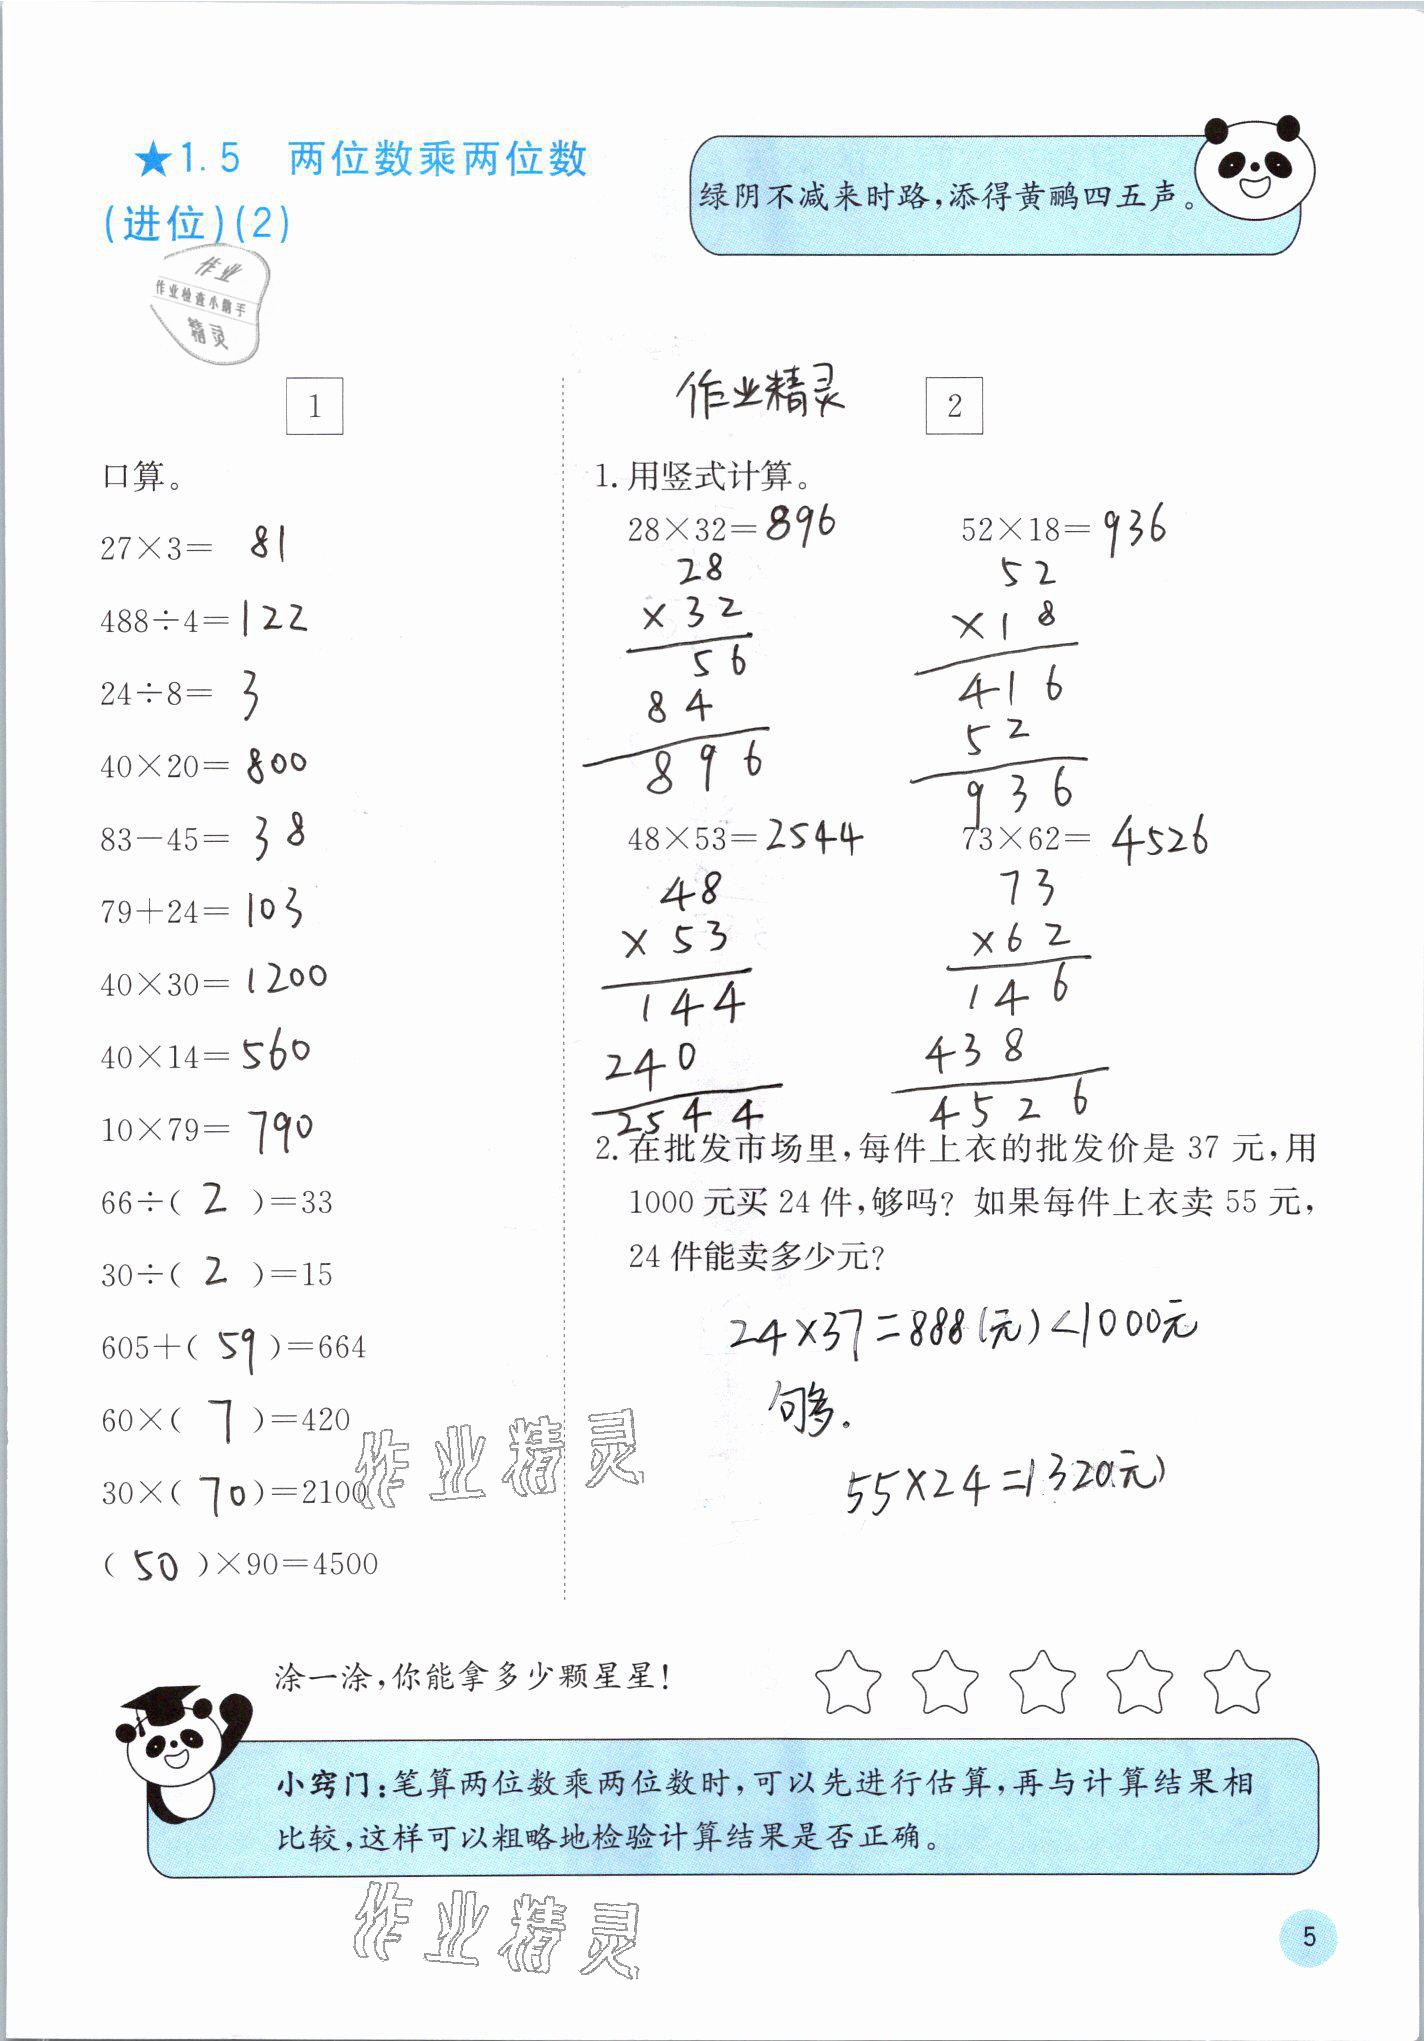 ★1.5 两位数乘两位数
(进位)(2)
绿阴不减来时路,添得黄鹂四五声。
作业
作业检查小助手
精灵
1
口算。
27×3= 81
488÷4=122
24÷8= 3
40×20=800
83-45= 38
79+24=103
40×30=1200
40×14=560
10×79=790
66÷( 2 )=33
30÷( 2 )=15
605+( 59 )=664
60×( 7 )=420
30×( 70 )=2100
( 50 )×90=4500
作业精灵
2
1. 用竖式计算。
28×32=896 52×18=936
28
×32
56
84
896
52
×18
416
52
936
48×53=2544 73×62=4526
48
×53
144
240
2544
73
×62
146
438
4526
2. 在批发市场里,每件上衣的批发价是 37 元,用
1000 元买 24 件,够吗? 如果每件上衣卖 55 元,
24 件能卖多少元?
24×37=888(元)<1000元
够.
55×24=1320(元)
作业精灵
涂一涂,你能拿多少颗星星!
小窍门:笔算两位数乘两位数时,可以先进行估算,再与计算结果相
比较,这样可以粗略地检验计算结果是否正确。
作业精灵
5